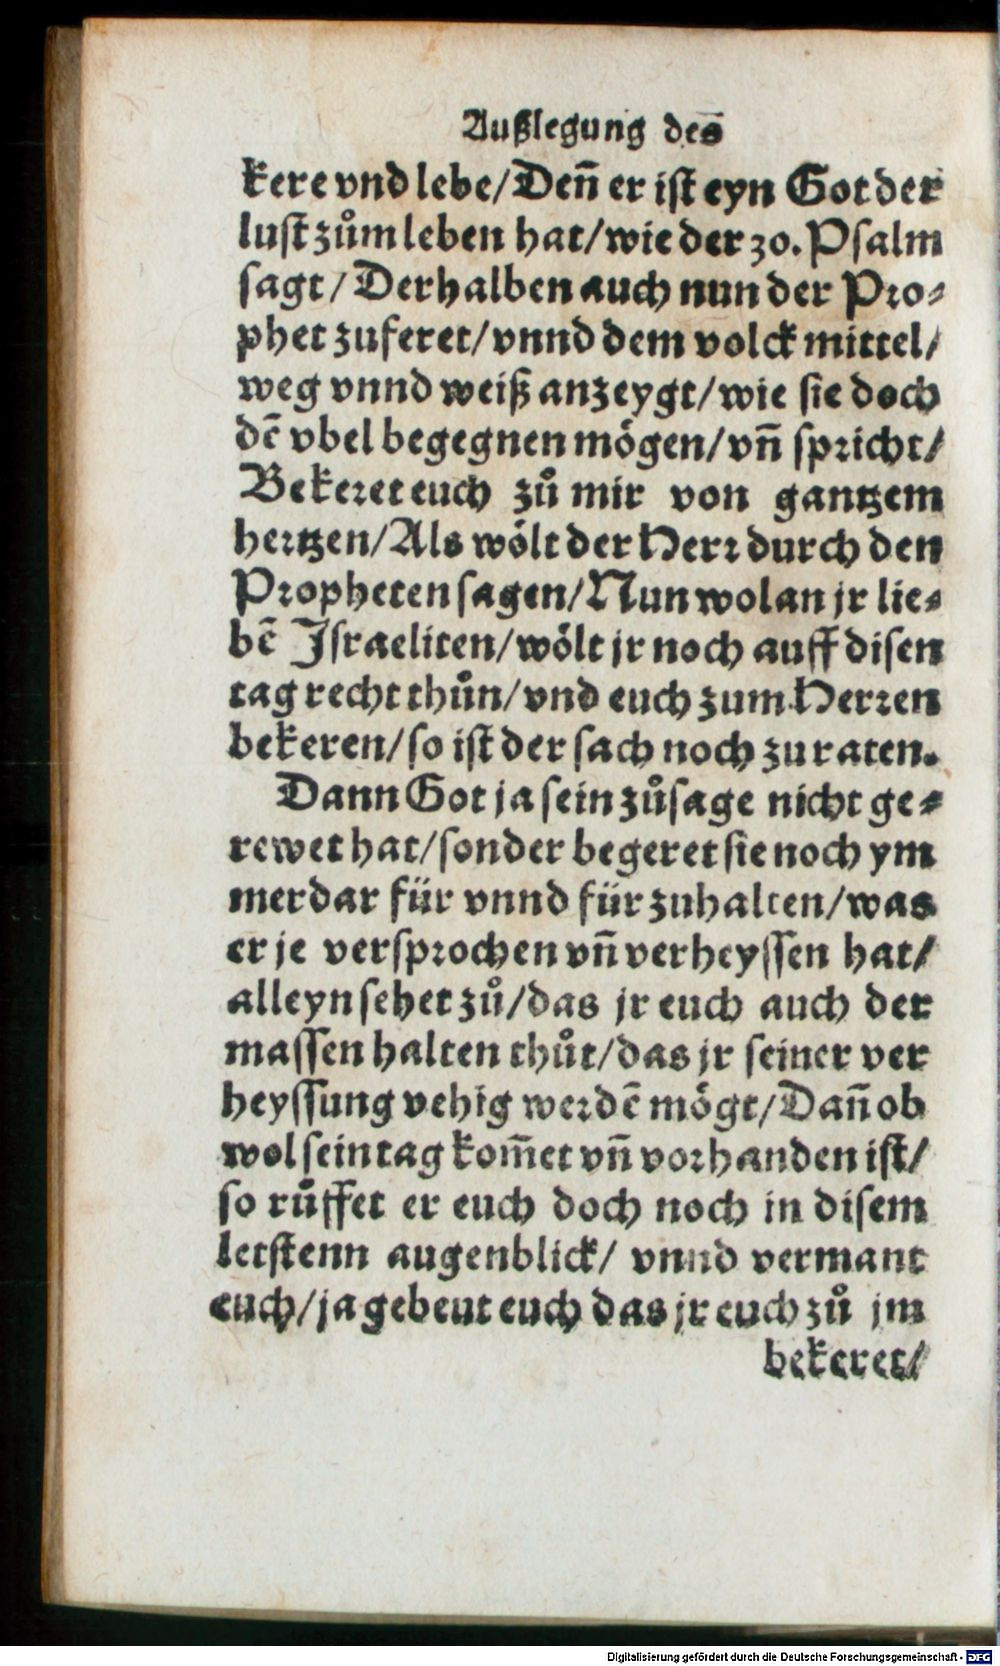 Außlegung des
kere vnd lebe/Deñ er ist eyn Got der
lust zům leben hat/wie der 30. Psalm
sagt/Derhalben auch nun der Pro⸗
phet zuferet/vnnd dem volck mittel/
weg vnnd weiß anzeygt/wie sie doch
dē vbel begegnen mögen/vñ spricht/
Bekeret euch zů mir von gantzem
hertzen/Als wölt der Herr durch den
Propheten sagen/Nun wolan jr lie⸗
bē Israeliten/wölt jr noch auff disen
tag recht thůn/vnd euch zum Herren
bekeren/so ist der sach noch zu raten.
Dann Got ja sein zůsage nicht ge⸗
rewet hat/sonder begeret sie noch ym
merdar für vnnd für zuhalten/was
er je versprochen vñ verheyssen hat/
alleyn sehet zů/das jr euch auch der
massen halten thůt/das jr seiner ver
heyssung vehig werdē mögt/Dañ ob
wol sein tag kom̄et vñ vorhanden ist/
so růffet er euch doch noch in disem
letstenn augenblick/ vnnd vermant
euch/ja gebeut euch das jr euch zů jm
bekeret/
Digitalisierung gefördert durch die Deutsche Forschungsgemeinschaft - DFG